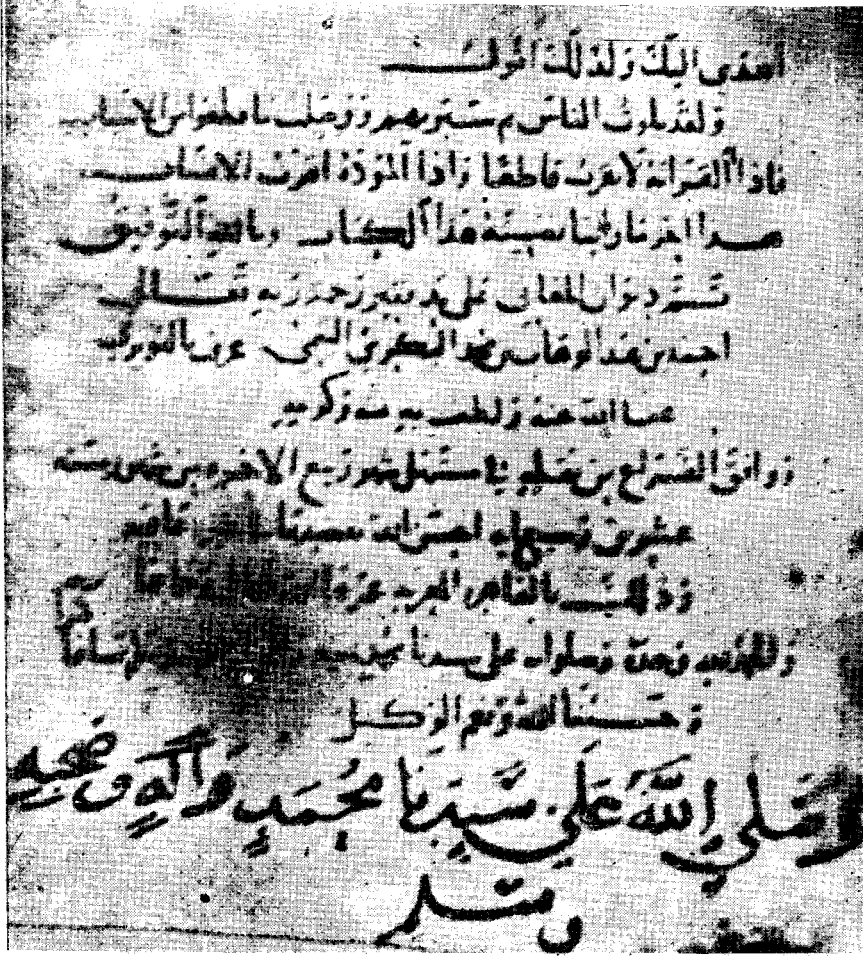 اهدى اليك ولذلك اقول
ولقد بلوت الناس ثم سبرتهم ووصلت ما قطعوا من الاسباب
فاذا القرابة لا تقرب قاطعا واذا المودة اقرب الانساب
هذا اخر ما رأينا تضمينه هذا الكتاب وبالله التوفيق
تم ديوان المعاني على يد فقير رحمة ربه تعالى
احمد بن عبد الوهاب بن محمد البكري التيمي عرف بالنويري
عفا الله عنه ولطف به بمنه وكرمه
ووافق الفراغ من نقله في مستهل شهر ربيع الاخر من شهور سنة
عشرين وسبعمايه احسن الله عافيه
وذلك بالقاهره المعزيه
ولله الحمد وصلواته على سيدنا محمد نبيه كثيرا
وحسبنا الله ونعم الوكيل
وصلي الله على سيدنا محمد واله وصحبه
وسلم